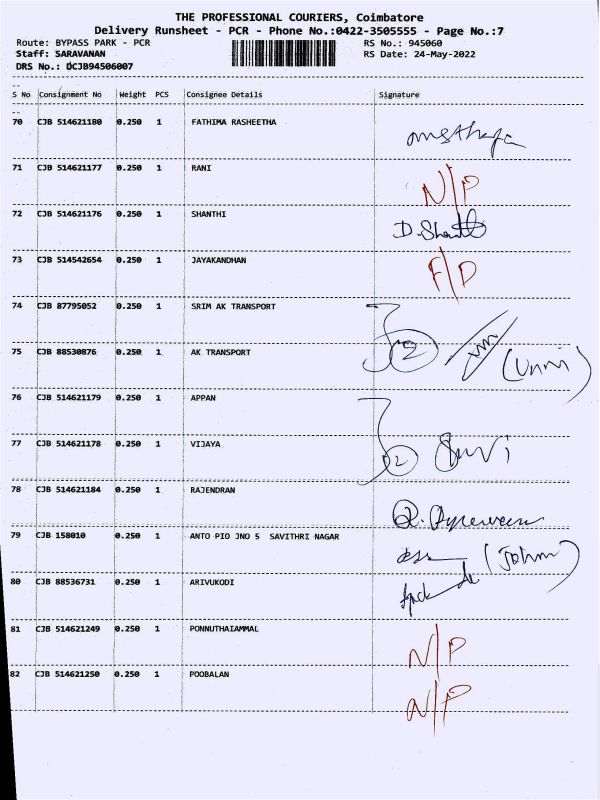 THE PROFESSIONAL COURIERS, Coimbatore
Delivery Runsheet - PCR - Phone No.:0422-3505555 - Page No.:7
Route: BYPASS PARK - PCR RS No.: 945060
Staff: SARAVANAN RS Date: 24-May-2022
DRS No.: DCJB94506007
S No Consignment No Weight PCS Consignee Details Signature
70 CJB 514621180 0.250 1 FATHIMA RASHEETHA
71 CJB 514621177 0.250 1 RANI N/P
72 CJB 514621176 0.250 1 SHANTHI D.Shanthi
73 CJB 514542654 0.250 1 JAYAKANDHAN F/D
74 CJB 87795052 0.250 1 SRIM AK TRANSPORT
75 CJB 88530876 0.250 1 AK TRANSPORT 2 (Unni)
76 CJB 514621179 0.250 1 APPAN
77 CJB 514621178 0.250 1 VIJAYA 2
78 CJB 514621184 0.250 1 RAJENDRAN
79 CJB 158010 0.250 1 ANTO PIO JNO 5 SAVITHRI NAGAR (Johni)
80 CJB 88536731 0.250 1 ARIVUKODI
81 CJB 514621249 0.250 1 PONNUTHAIAMMAL N/P
82 CJB 514621250 0.250 1 POOBALAN N/P